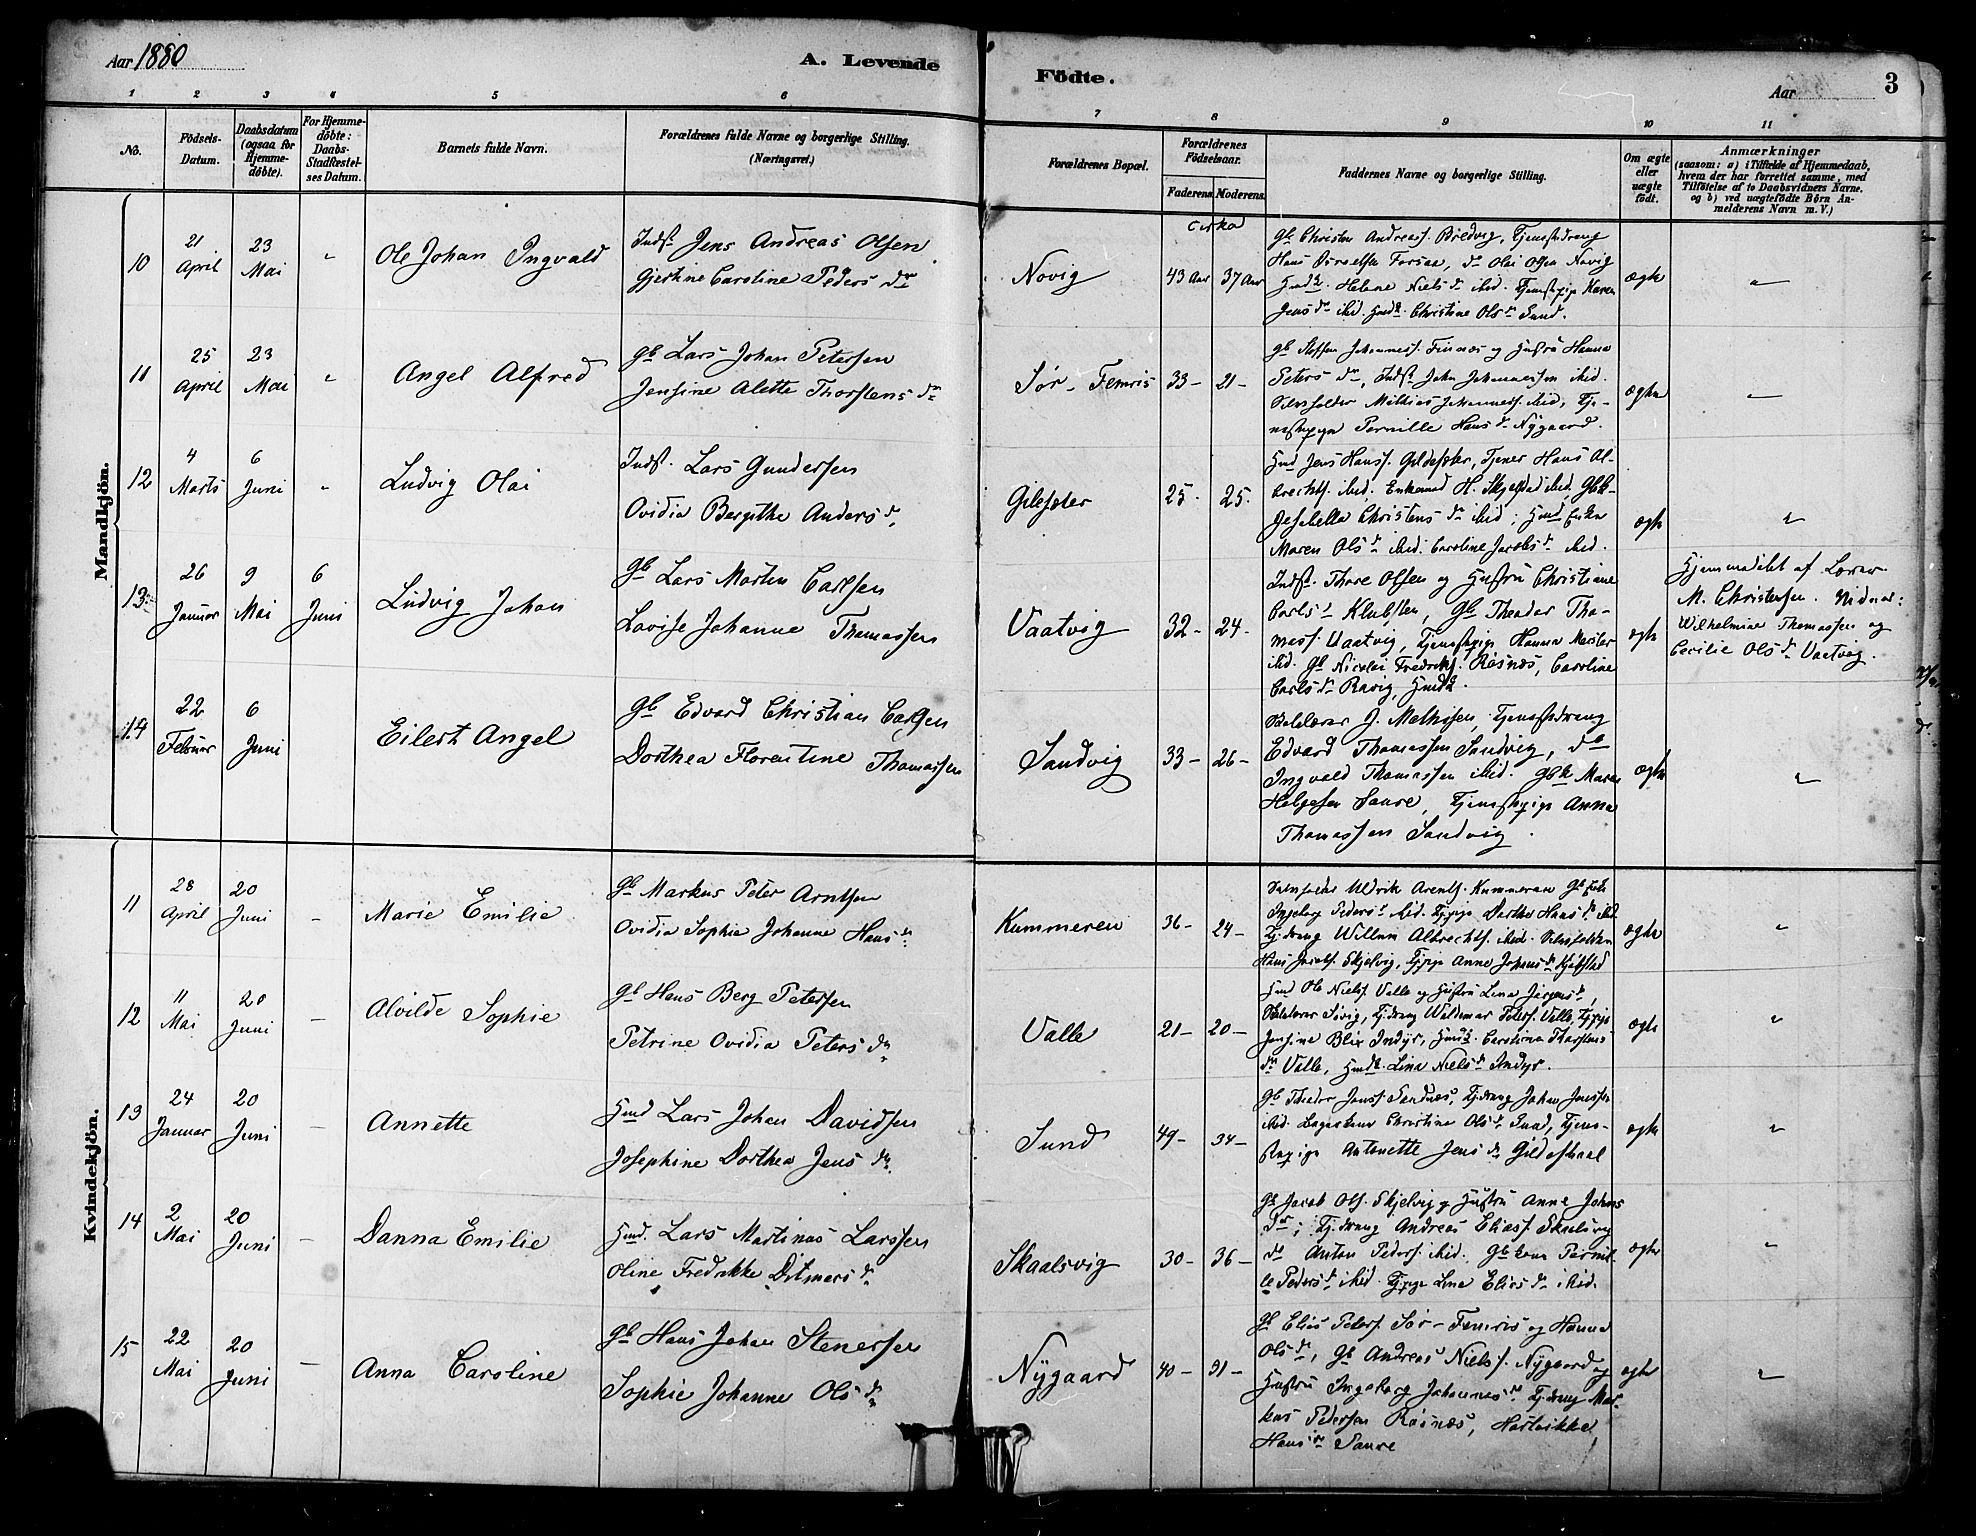 Aar 1880
A. Levende
Födte.
Aar
3
1 2 3 4 5 6 7 8 9 10 11
No.
Födsels-
Datum.
Daabsdatum
(ogsaa for
Hjemme-
döbte).
For Hjemme-
döbte:
Daabs-
Stadfæstel-
ses Datum.
Barnets fulde Navn.
Forældrenes fulde Navne og borgerlige Stilling.
(Næringsvei.)
Forældrenes Bopæl.
Forældrenes
Födselsaar.
Faderens Moderens.
Faddernes Navne og borgerlige Stilling.
Om ægte
eller
uægte
födt.
Anmærkninger
(saasom: a) i Tilfælde af Hjemmedaab,
hvem der har forrettet samme, med
Tilföielse af to Daabsvidners Navne.
og b) ved uægtefödte Börn An-
melderens Navn m. V.)
Mandkjön.
10
21
April
23
Mai
"
Ole Johan Ingvald
Indst. Jens Andreas Olsen
Gjertine Caroline Peders dr
Novig
cirka
43 Aar 37 Aar
Gb Christen Andreas. Bredvig, Tjenestedreng
Hans Israelsen Forsaa, do Olai Olsen Novig
Helene Niels dr ibid. Tjenestpige Karen
Jens dr ibid. Christine Ols dr Sund.
ægte
"
11
25
April
23
Mai
"
Angel Alfred
Gb Lars Johan Petersen
Jensine Alette Thorstens dr
Sør-Femris
33- 21-
Gb Steffen Johannes. Finnæs og Hustru Hanna
Peters dr, Indst. John Johannessen ibid.
Selvfolder Mathias Johannes. ibid, Tje-
nestpige Pernille Hans dr Nygaard.
ægte
"
12
4
Marts
6
Juni
"
Ludvig Olai
Indst. Lars Gundersen
Ovidia Bergithe Anders dr
Gildesæter
25. 25.
Hmd Jens Hans. Gildesæter, Tjener Hans Al-
brechts. ibid, Enkemd H. Skjelstad ibid, Gbk
Jesabella Christens dr ibid, Hmd Enke
Maren Ols dr ibid. Caroline Jacobs dr ibid.
ægte
"
13
26
Januar
9
Mai
6
Juni
Ludvig Johan
Gb Lars Morten Carlsen
Lovise Johanne Thomassen
Vaatvig
32- 24-
Indst. Thore Olsen og Hustru Christiane
Carls dr Klubsten, Gb Theodor Tho-
mass. Vaatvig, Tjenestpige Hanna
ibid. Gb Nicolai Fredriks. Røsnæs, Caroline
Carls dr Ravig, Hmdk.
ægte
Hjemmedöbt af Lærer
M. Christensen. Vidner:
Wilhelmine Thomassen og
Cecilie Ols dr Vaatvig.
14
22
Februar
6
Juni
Eilert Angel
Gb Edvard Christian Carlsen
Dorthea Florentine Thomassen
Sandvig
33- 26-
J. Mathisen, Tjenestedreng
Edvard Thomassen Sandvig, do
Ingvald Thomassen ibid. Gbk Maren
Helgesen Saure, Tjenestpige Anna
Thomassen Sandvig.
ægte
"
Kvindekjön.
11
28
April
20
Juni
-
Marie Emilie
Gb Markus Peter Arntsen
Ovidia Sophie Johanne Hans dr
Kummeren
36- 24-
Ulrik Arents. Kummeren
Ingeborg Peders dr ibid. Tjpige Dorthe Hans dr ibid.
Tj.dreng Willum Albrechts. ibid.
Hans Jacobs. Skjelvig, Tjpige Anne Johans dr
ægte
"
12
11
Mai
20
Juni
-
Alvilde Sophie
Gb Hans Berg Petersen
Petrine Ovidia Peters dr
Valle
21- 20-
Hmd Ole Niels. Valle og Hustru Lina Jörgens dr,
Sivig, Tj.dreng Waldemar Peters. Valle, Tjpige
Jensine Blix Indyr, Hmdk. Carolina Thorstens
dr Valle, Hmdk. Lina Niels dr Indyr.
ægte
"
13
24
Januar
20
Juni
-
Annette
Hmd Lars Johan Davidsen
Josephine Dorthea Jens dr
Sund
49- 34-
Gb Theodor Jens. Sandnæs, Tj.dreng Johan Jenssen
ibid. Christine Ols dr Sund, Tjene-
stepige Antonette Jens dr
ægte
"
14
2
Mai
20
Juni
-
Danna Emilie
Hmd. Lars Martinus Larssen
Oline Fredrikke Ditmars dr
Skaalsvig
30- 36-
Gb Jacob Ols. Skjelvig og Hustru Anne Johans
dr; Tj.dreng Andreas Elias. Skaalsvig
do Anton Peders. ibid. Gbkone Pernil-
le Peders dr ibid. Tjpige Lina Elias dr ibid.
ægte
"
15
22
Mai
20
Juni
-
Anna Caroline
Gb Hans Johan Stenersen
Sophie Johanne Ols dr
Nygaard
40- 31-
Gb Elias Peters. Sør-Femris og Hanna
Ols dr, Gb Andreas Niels. Nygaard og
Hustru Ingeborg Johannes dr Tj.dreng Mar-
kus Pedersen Røsnæs, Hartvikka
Hans dr Saure
ægte
"